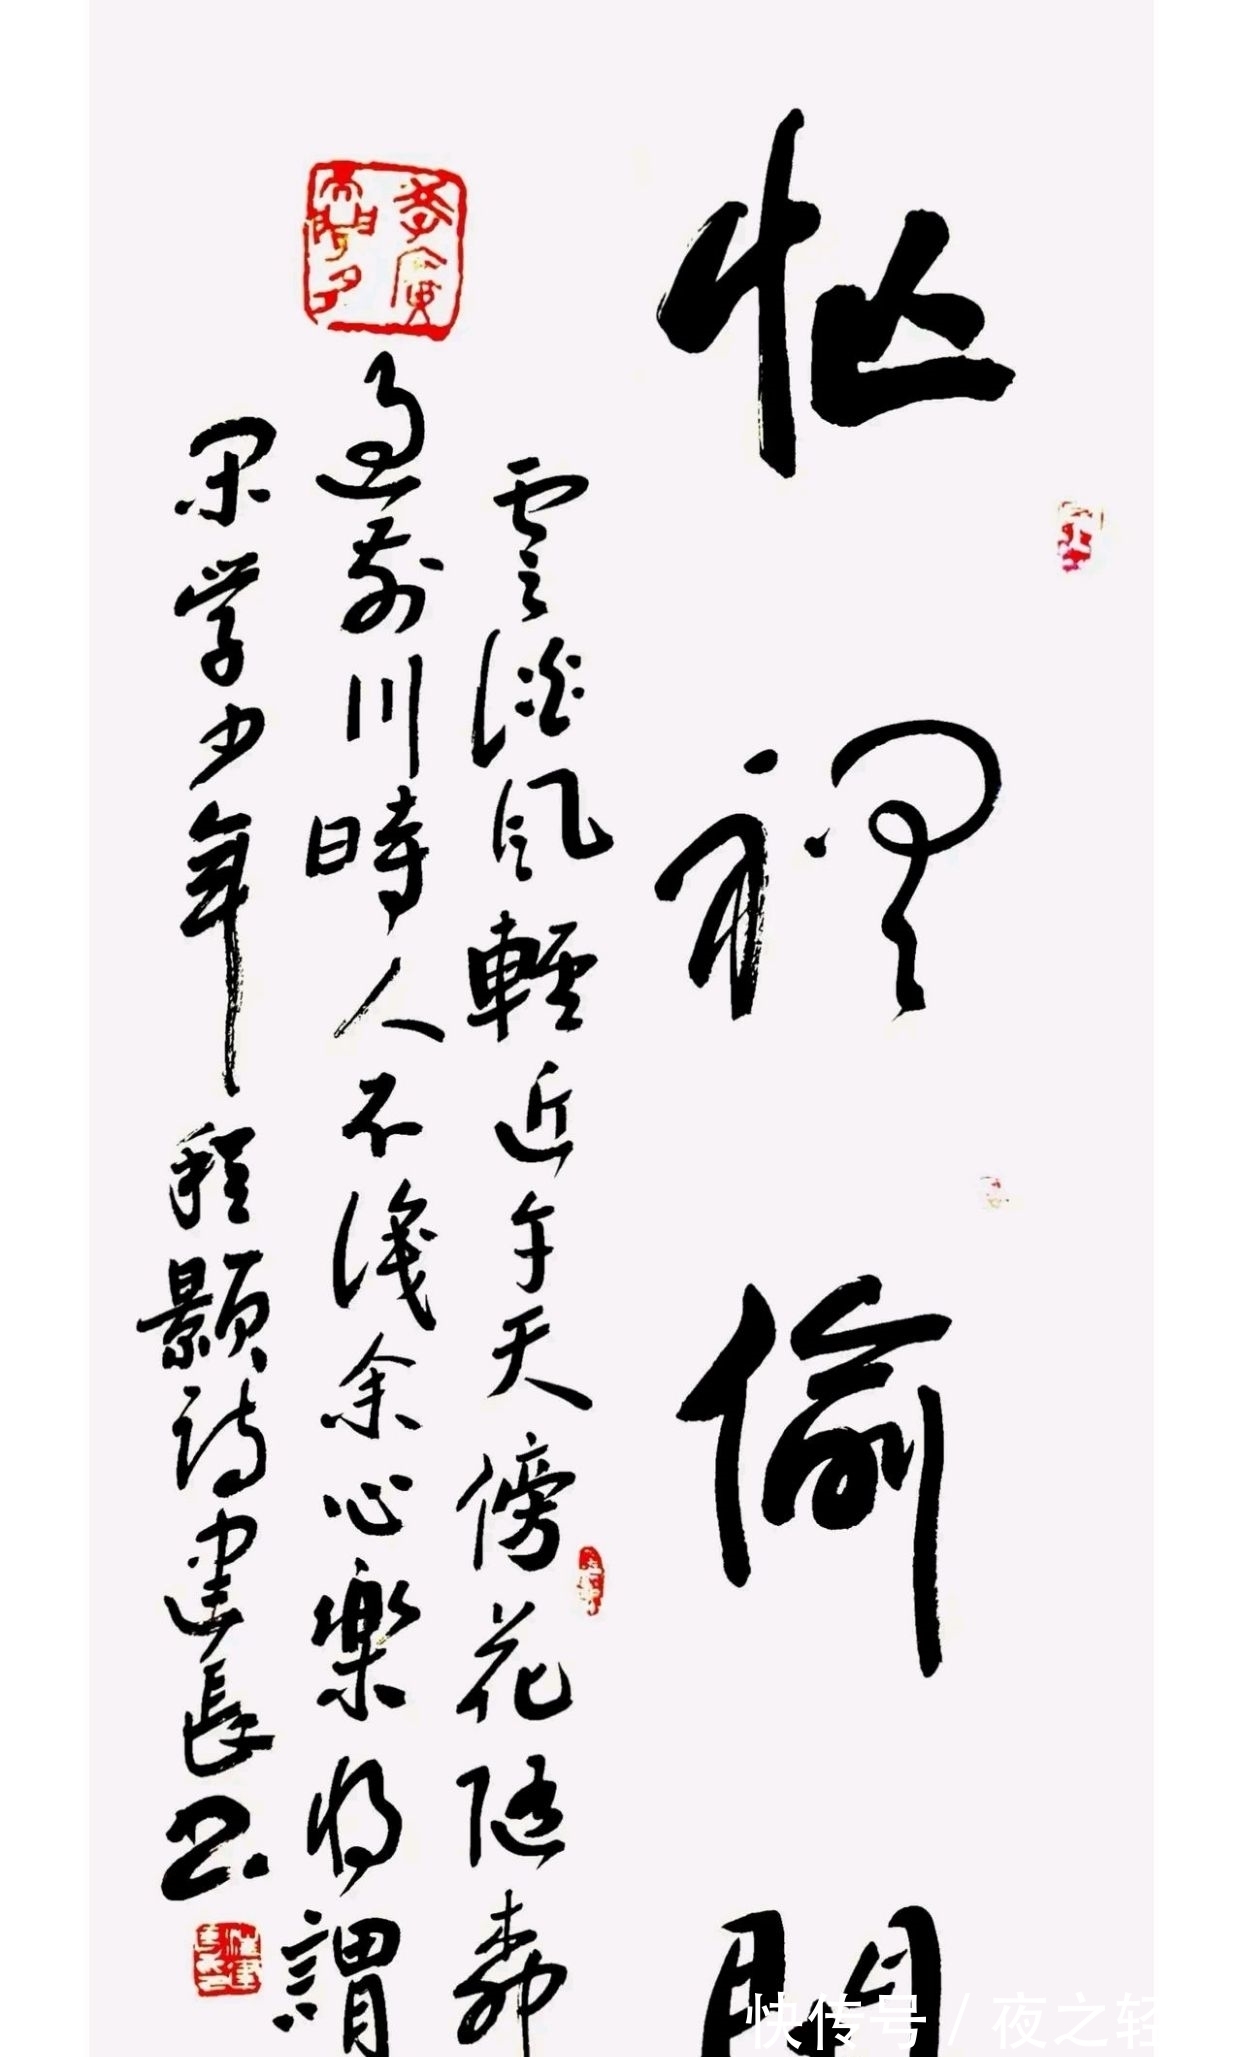 忙裡偷閒
雲淡風輕近午天傍花隨柳
過前川時人不識余心樂將謂
闲学少年程顥詩建長书
快传号 / 夜之轻